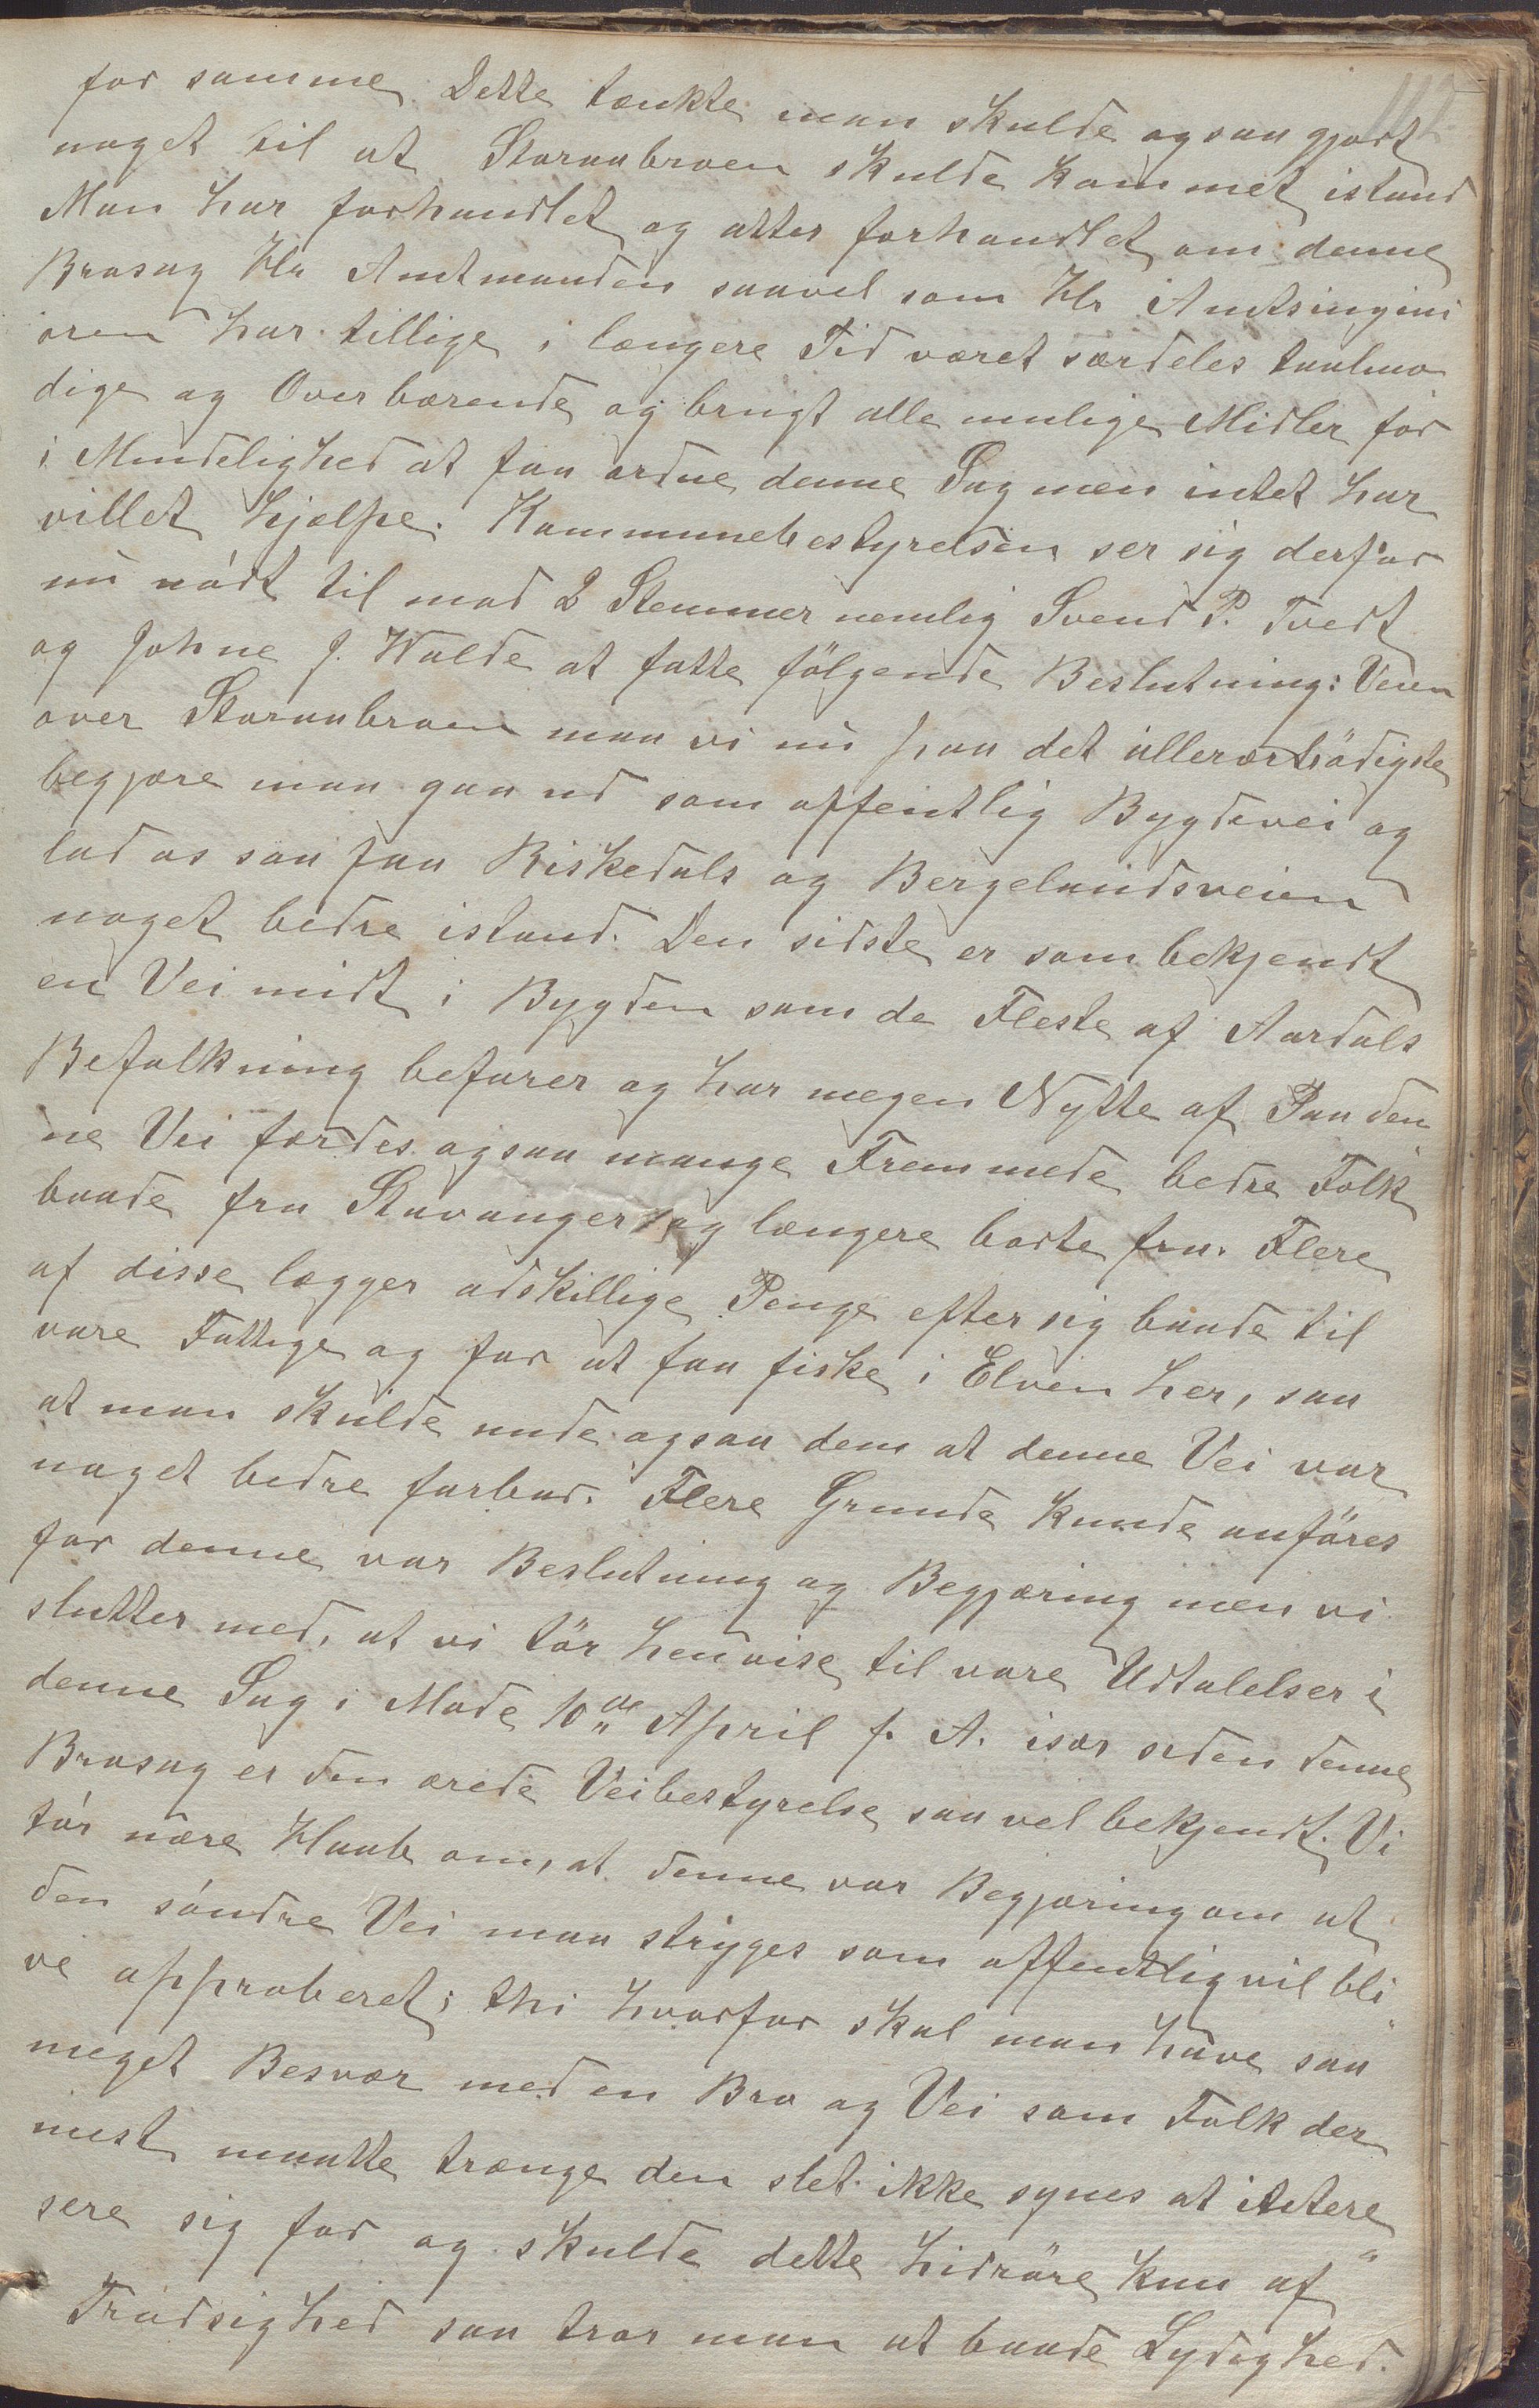 for samme. Dette tænkte man skulde ogsaa gjort
noget til at Storaabroen skulde kommet istand
Man har forhandlet og atter forhandlet om denne
Brosag Hr Amtmanden saavel som Hr Amtsingini
øren har tillige i længere Tid været særdeles taalmo
dige og Overbærende og brugt alle mulige Midler for
i Mindelighed at faa ordne denne Sag men intet har
villet hjælpe. Kommunebestyrelsen ser sig derfor
nu nødt til mod 2 Stemmer nemlig Svend P. Tvedt
og Johne J. Walde at fatte følgende Beslutning: Veien
over Storaabroen maa vi nu paa det allerærbødigste
begjære maa gaa ud som offentlig Bygdevei og
lad os saa faa Riskedals og Bergelandsveien
noget bedre istand. Den sidste er som bekjendt
en Vei midt i Bygden som de Fleste af Aardals
Befolkning befarer og har megen Nytte af Paa den
ne Vei færdes ogsaa mange Fremmede bedre Folk
baade fra Stavanger og længere borte fra. Flere
af disse lægger adskillige Penge efter sig baade til
vore Fattige og for at faa fiske i Elven her, saa
at man skulde unde ogsaa dem at denne Vei var
noget bedre farbar. Flere Grunde kunde anføres
for denne vor Beslutning og Begjæring men vi
slutter med, at vi tør henvise til vore Udtalelser i
denne Sag i Møde 10de April f. A. især siden denne
Brosag er den ærede Veibestyrelse saa vel bekjendt. Vi
tør nære Haab om, at denne vor Begjæring om at
den søndre Vei maa stryges som offentlig vil bli
ve approberet; thi hvorfor skal man have saa
meget Besvær med en Bro og Vei som Folk der
mest maatte trænge den slet ikke synes at intere
sere sig for og skulde dette hidrøre kun af
Trodsighed saa tror man at baade Lydighed.